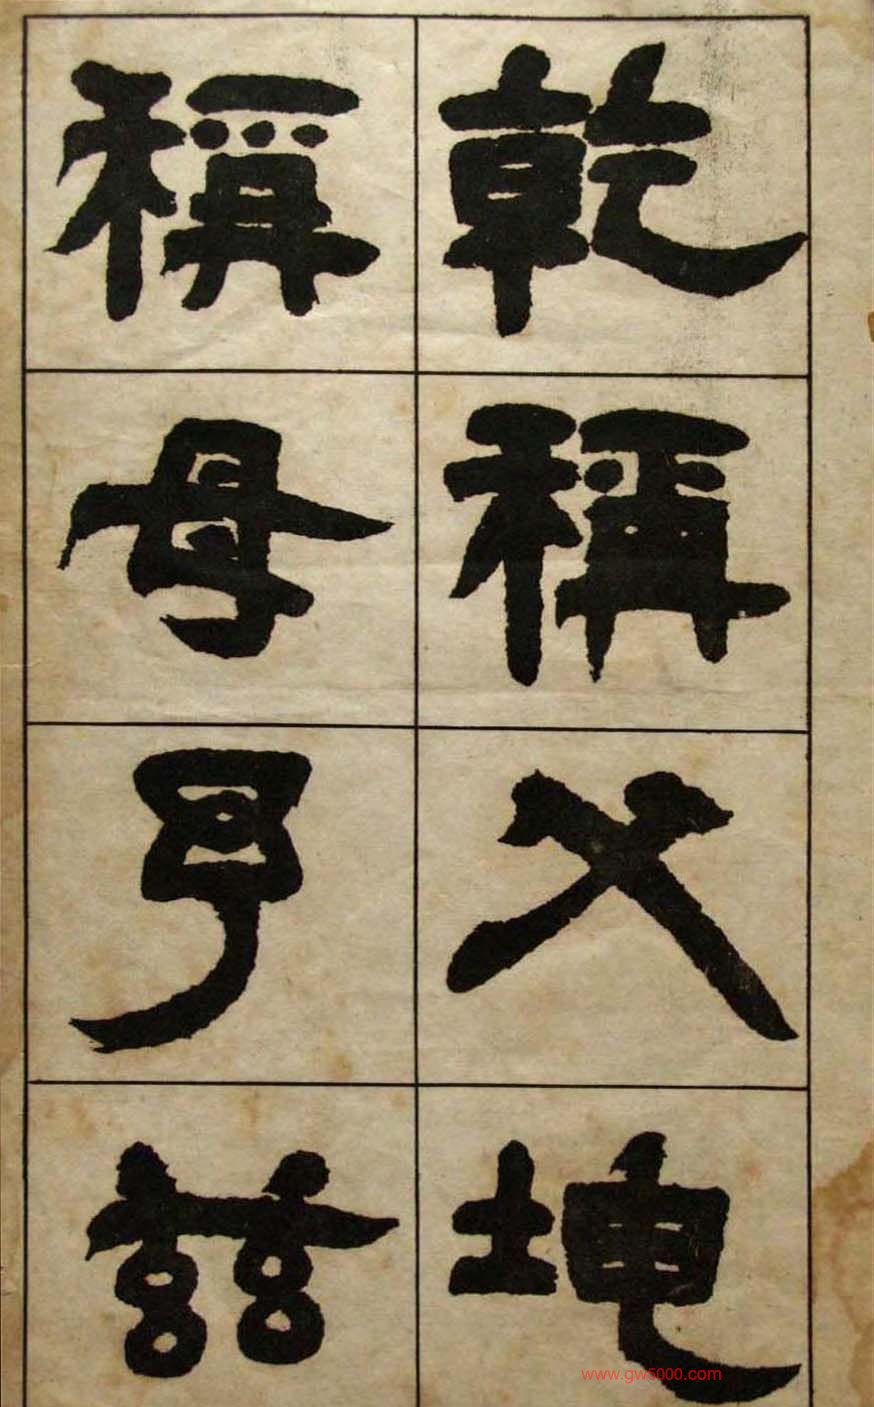 乾稱父坤
稱母予兹
www.gw5000.com